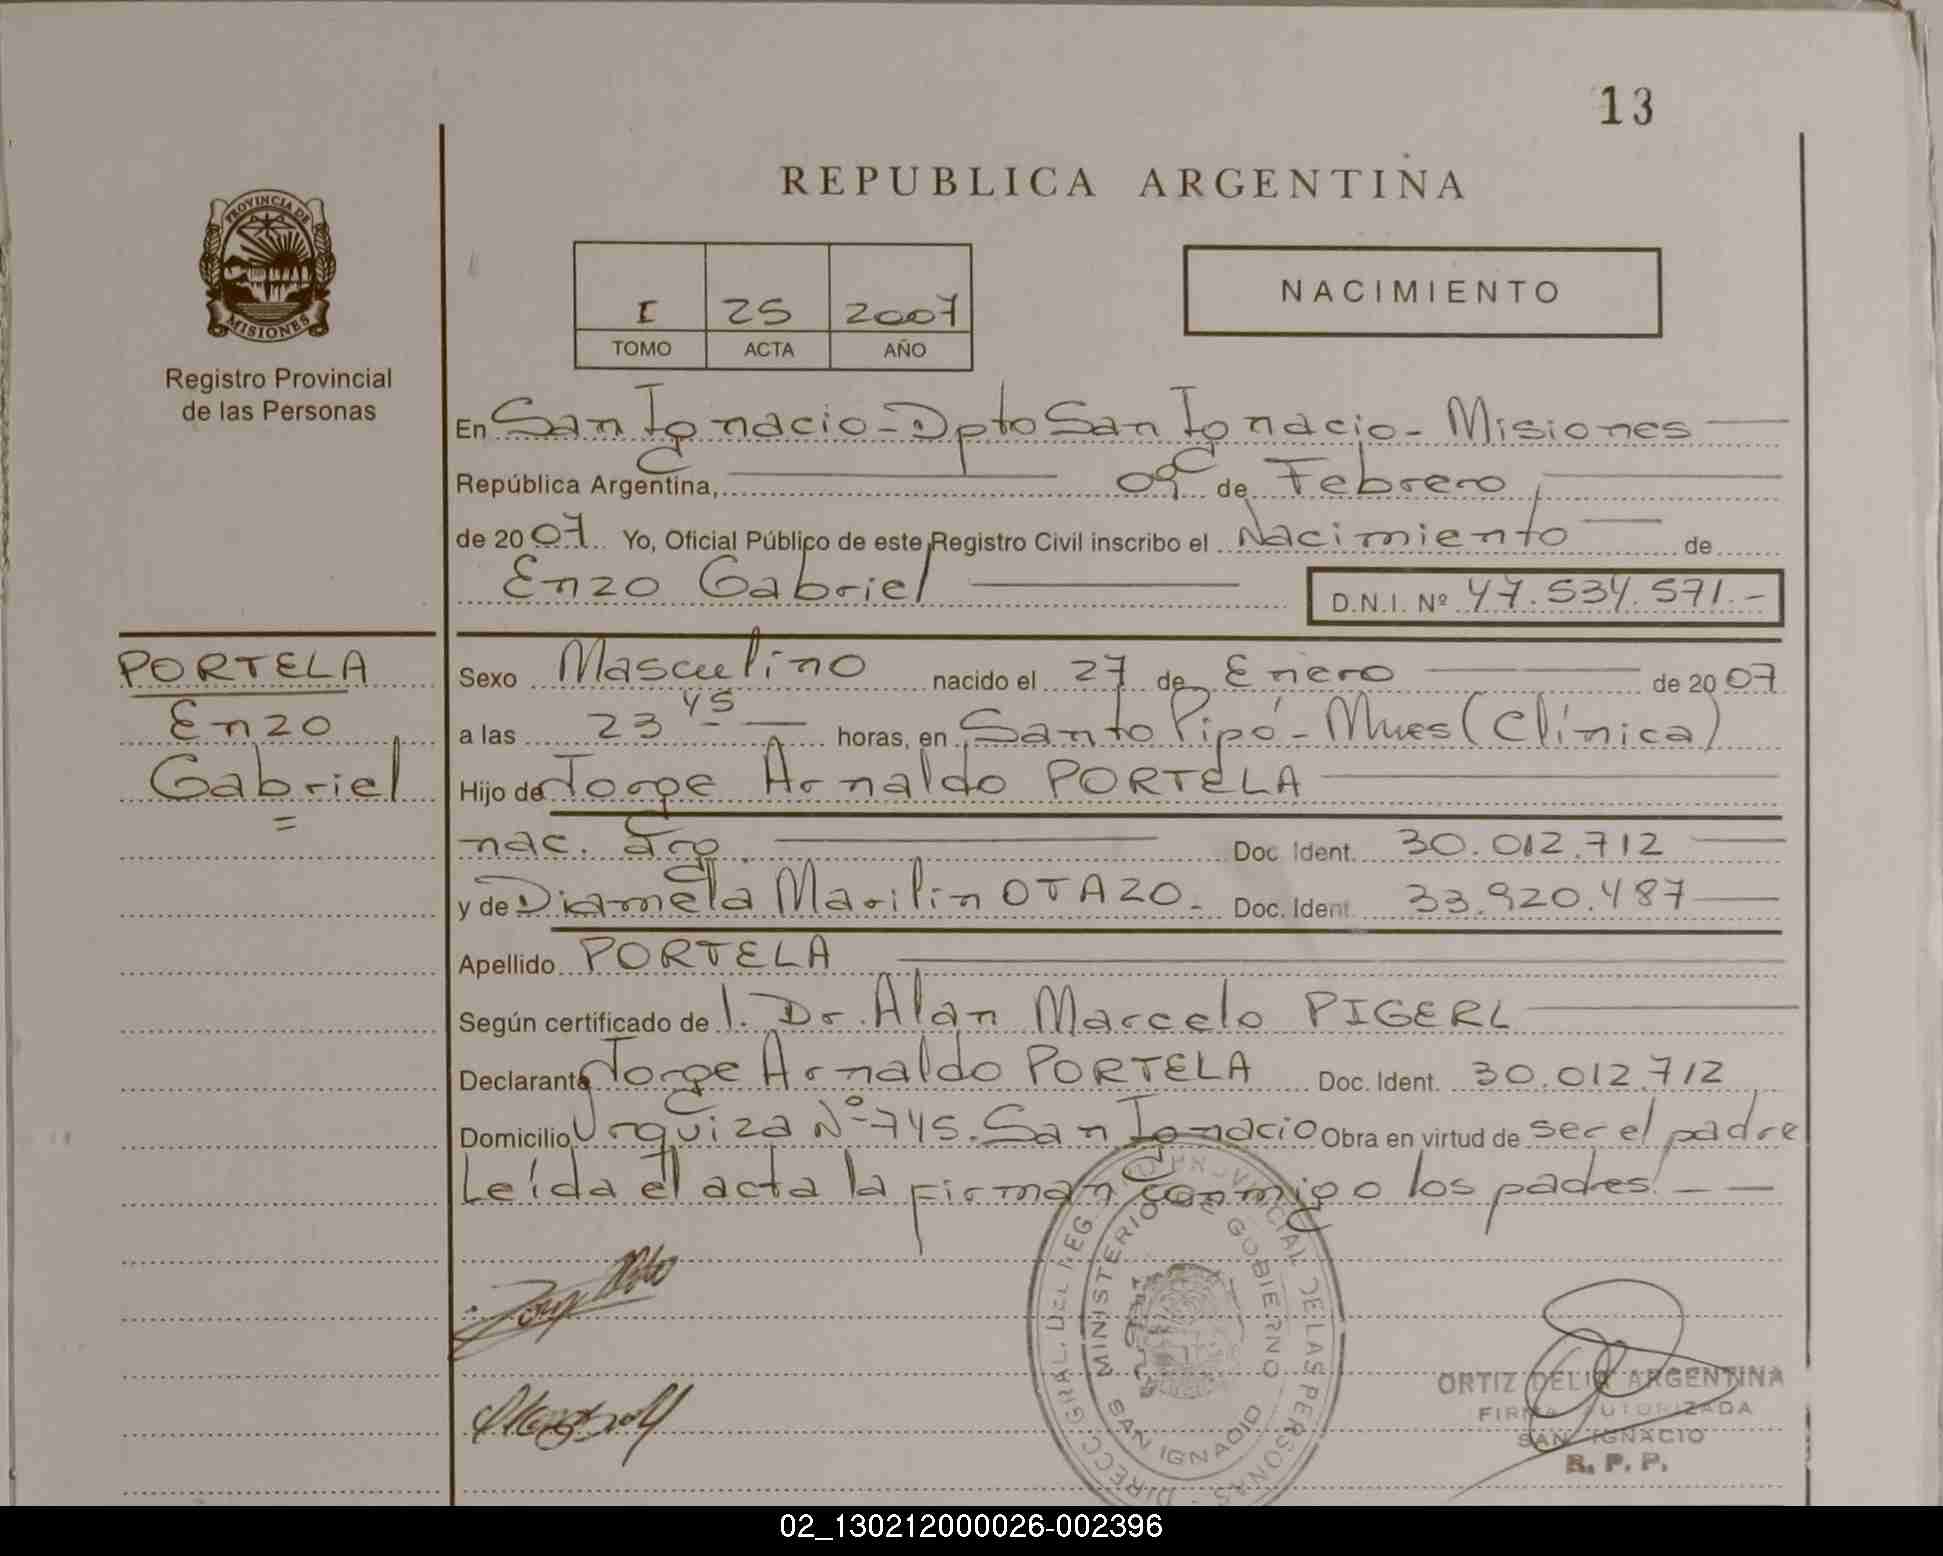 13
REPUBLICA ARGENTINA
PROVINCIA DE
MISIONES
Registro Provincial
de las Personas
I 25 2007
TOMO ACTA AÑO
NACIMIENTO
En San Ignacio - Dpto San Ignacio - Misiones
República Argentina, 09 de Febrero
de 2007 Yo, Oficial Público de este Registro Civil inscribo el Nacimiento de
Enzo Gabriel D.N.I. Nº 47.534.571.-
PORTELA
Enzo
Gabriel
Sexo Masculino nacido el 27 de Enero de 2007
a las 23 45 horas, en Santo Pipó - Mnes (Clínica)
Hijo de Jorge Arnaldo PORTELA
nac. arg. Doc. Ident. 30.012.712
y de Diamela Marilin OTAZO. Doc. Ident. 33.920.487
Apellido PORTELA
Según certificado de l. Dr. Alan Marcelo PIGERL
Declarante Jorge Arnaldo PORTELA Doc. Ident. 30.012.712
Domicilio Urquiza Nº 745. San Ignacio Obra en virtud de ser el padre
Leída el acta la firman conmigo los padres. - -
DIRECC. GRAL. DEL REG. PROVINCIAL DE LAS PERSONAS
MINISTERIO DE GOBIERNO
SAN IGNACIO
ORTIZ DELIA ARGENTINA
FIRMA AUTORIZADA
SAN IGNACIO
R. P. P.
02_130212000026-002396